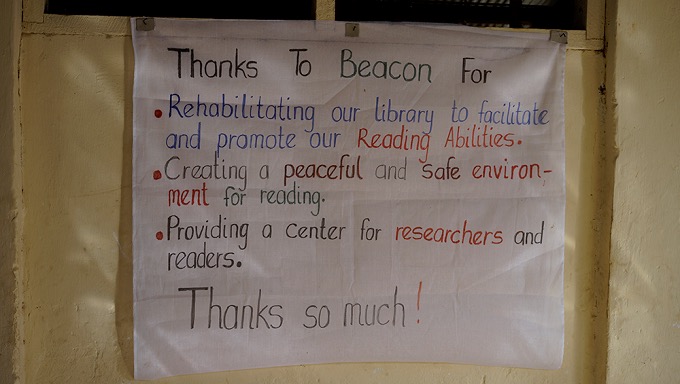 Thanks To Beacon For
• Rehabilitating our library to facilitate
and promote our Reading Abilities.
• Creating a peaceful and safe environ-
ment for reading.
• Providing a center for researchers and
readers.
Thanks so much!